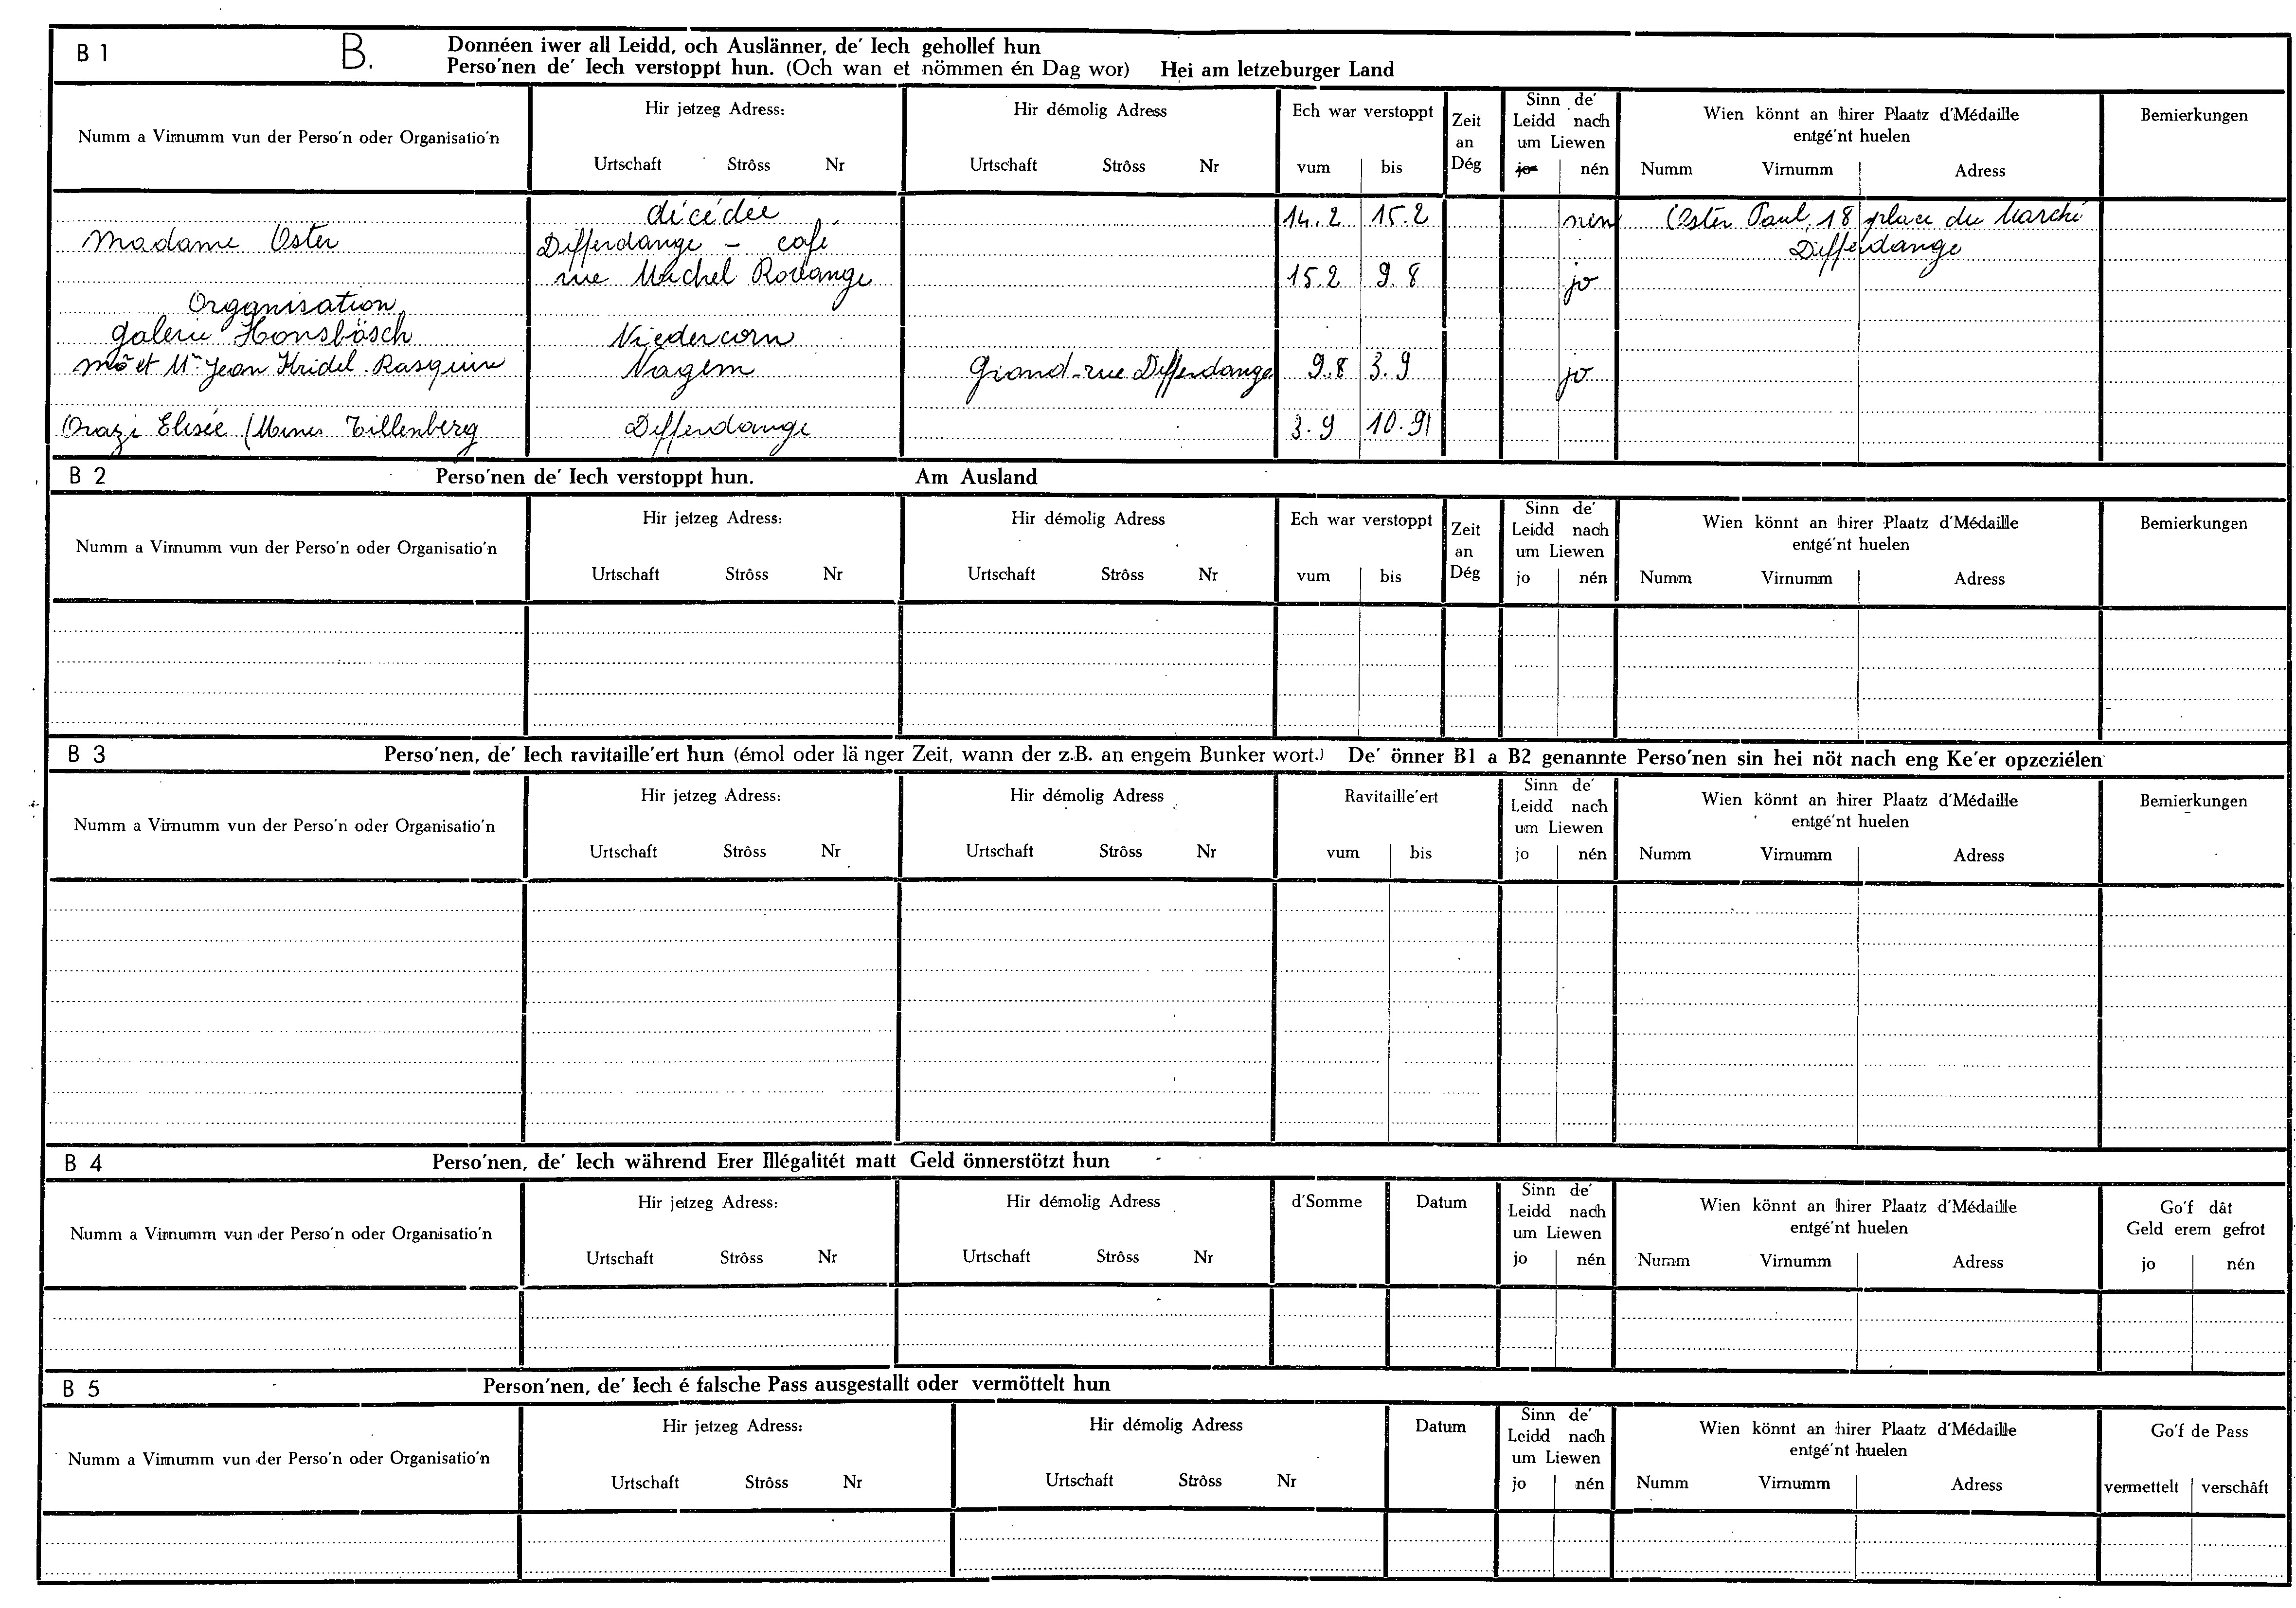 B 1
B.
Donnéen iwer all Leidd, och Auslänner, de' Iech gehollef hun
Perso'nen de' Iech verstoppt hun. (Och wan et nömmen én Dag wor) Hei am letzeburger Land
Numm a Virnumm vun der Perso'n oder Organisatio'n
Hir jetzeg Adress:
Urtschaft Strôss Nr
Hir démolig Adress
Urtschaft Strôss Nr
Ech war verstoppt
vum bis
Zeit
an
Dég
Sinn de'
Leidd nach
um Liewen
jo nén
Wien könnt an hirer Plaatz d'Médaille
entgé'nt huelen
Numm Virnumm Adress
Bemierkungen
décédée 14.2 15.2 nén Oster Paul, 18 place du Marché
Madame Oster Differdange - café Differdange
rue Michel Rodange 15.2 9.8 jo
Organisation
galerie Honsbösch Niedercorn
et Mr Jean Kridel Rasquin Nagem Grand-rue Differdange 9.8 3.9 jo
Orazi Elisée (Mines Tillenberg Differdange 3.9 10.9
B 2
Perso'nen de' Iech verstoppt hun. Am Ausland
Numm a Virnumm vun der Perso'n oder Organisatio'n
Hir jetzeg Adress:
Urtschaft Strôss Nr
Hir démolig Adress
Urtschaft Strôss Nr
Ech war verstoppt
vum bis
Zeit
an
Dég
Sinn de'
Leidd nach
um Liewen
jo nén
Wien könnt an hirer Plaatz d'Médaille
entgé'nt huelen
Numm Virnumm Adress
Bemierkungen
B 3
Perso'nen, de' Iech ravitaille'ert hun (émol oder lä nger Zeit, wann der z.B. an engem Bunker wort.) De' önner B1 a B2 genannte Perso'nen sin hei nöt nach eng Ke'er opzeziélen
Numm a Virnumm vun der Perso'n oder Organisatio'n
Hir jetzeg Adress:
Urtschaft Strôss Nr
Hir démolig Adress
Urtschaft Strôss Nr
Ravitaille'ert
vum bis
Sinn de'
Leidd nach
um Liewen
jo nén
Wien könnt an hirer Plaatz d'Médaille
entgé'nt huelen
Numm Virnumm Adress
Bemierkungen
B 4
Perso'nen, de' Iech während Erer Illégalitét matt Geld önnerstötzt hun
Numm a Virnumm vun der Perso'n oder Organisatio'n
Hir jetzeg Adress:
Urtschaft Strôss Nr
Hir démolig Adress
Urtschaft Strôss Nr
d'Somme
Datum
Sinn de'
Leidd nach
um Liewen
jo nén
Wien könnt an hirer Plaatz d'Médaille
entgé'nt huelen
Numm Virnumm Adress
Go'f dât
Geld erem gefrot
jo nén
B 5
Person'nen, de' Iech é falsche Pass ausgestallt oder vermöttelt hun
Numm a Virnumm vun der Perso'n oder Organisatio'n
Hir jetzeg Adress:
Urtschaft Strôss Nr
Hir démolig Adress
Urtschaft Strôss Nr
Datum
Sinn de'
Leidd nach
um Liewen
jo nén
Wien könnt an hirer Plaatz d'Médaille
entgé'nt huelen
Numm Virnumm Adress
Go'f de Pass
vermettelt verschâft